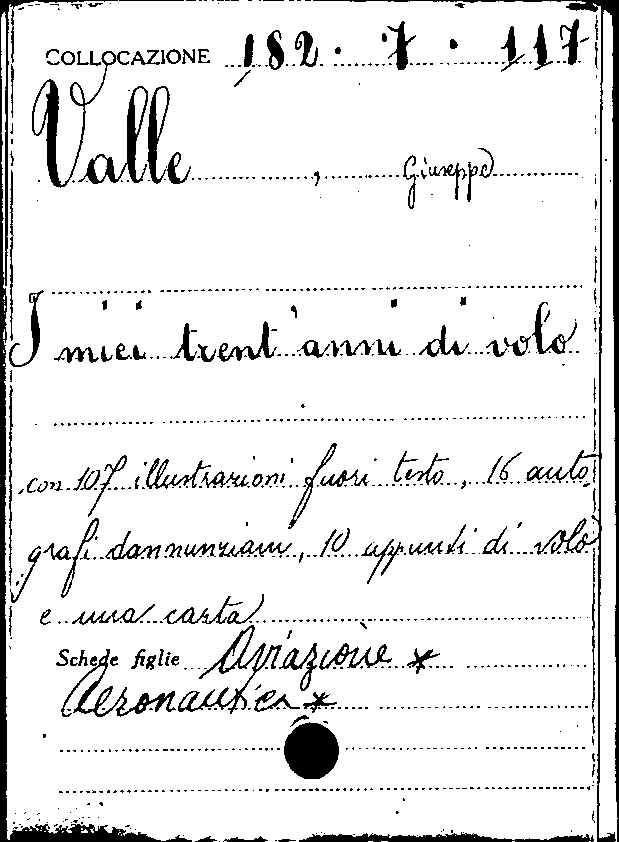 COLLOCAZIONE 182 · 7 · 117
Valle , Giuseppe
I miei trent'anni di volo
con 107 illustrazioni fuori testo, 16 auto
grafi dannunziani, 10 appunti di volo
e una carta
Schede figlie Aviazione *
Aeronautica *